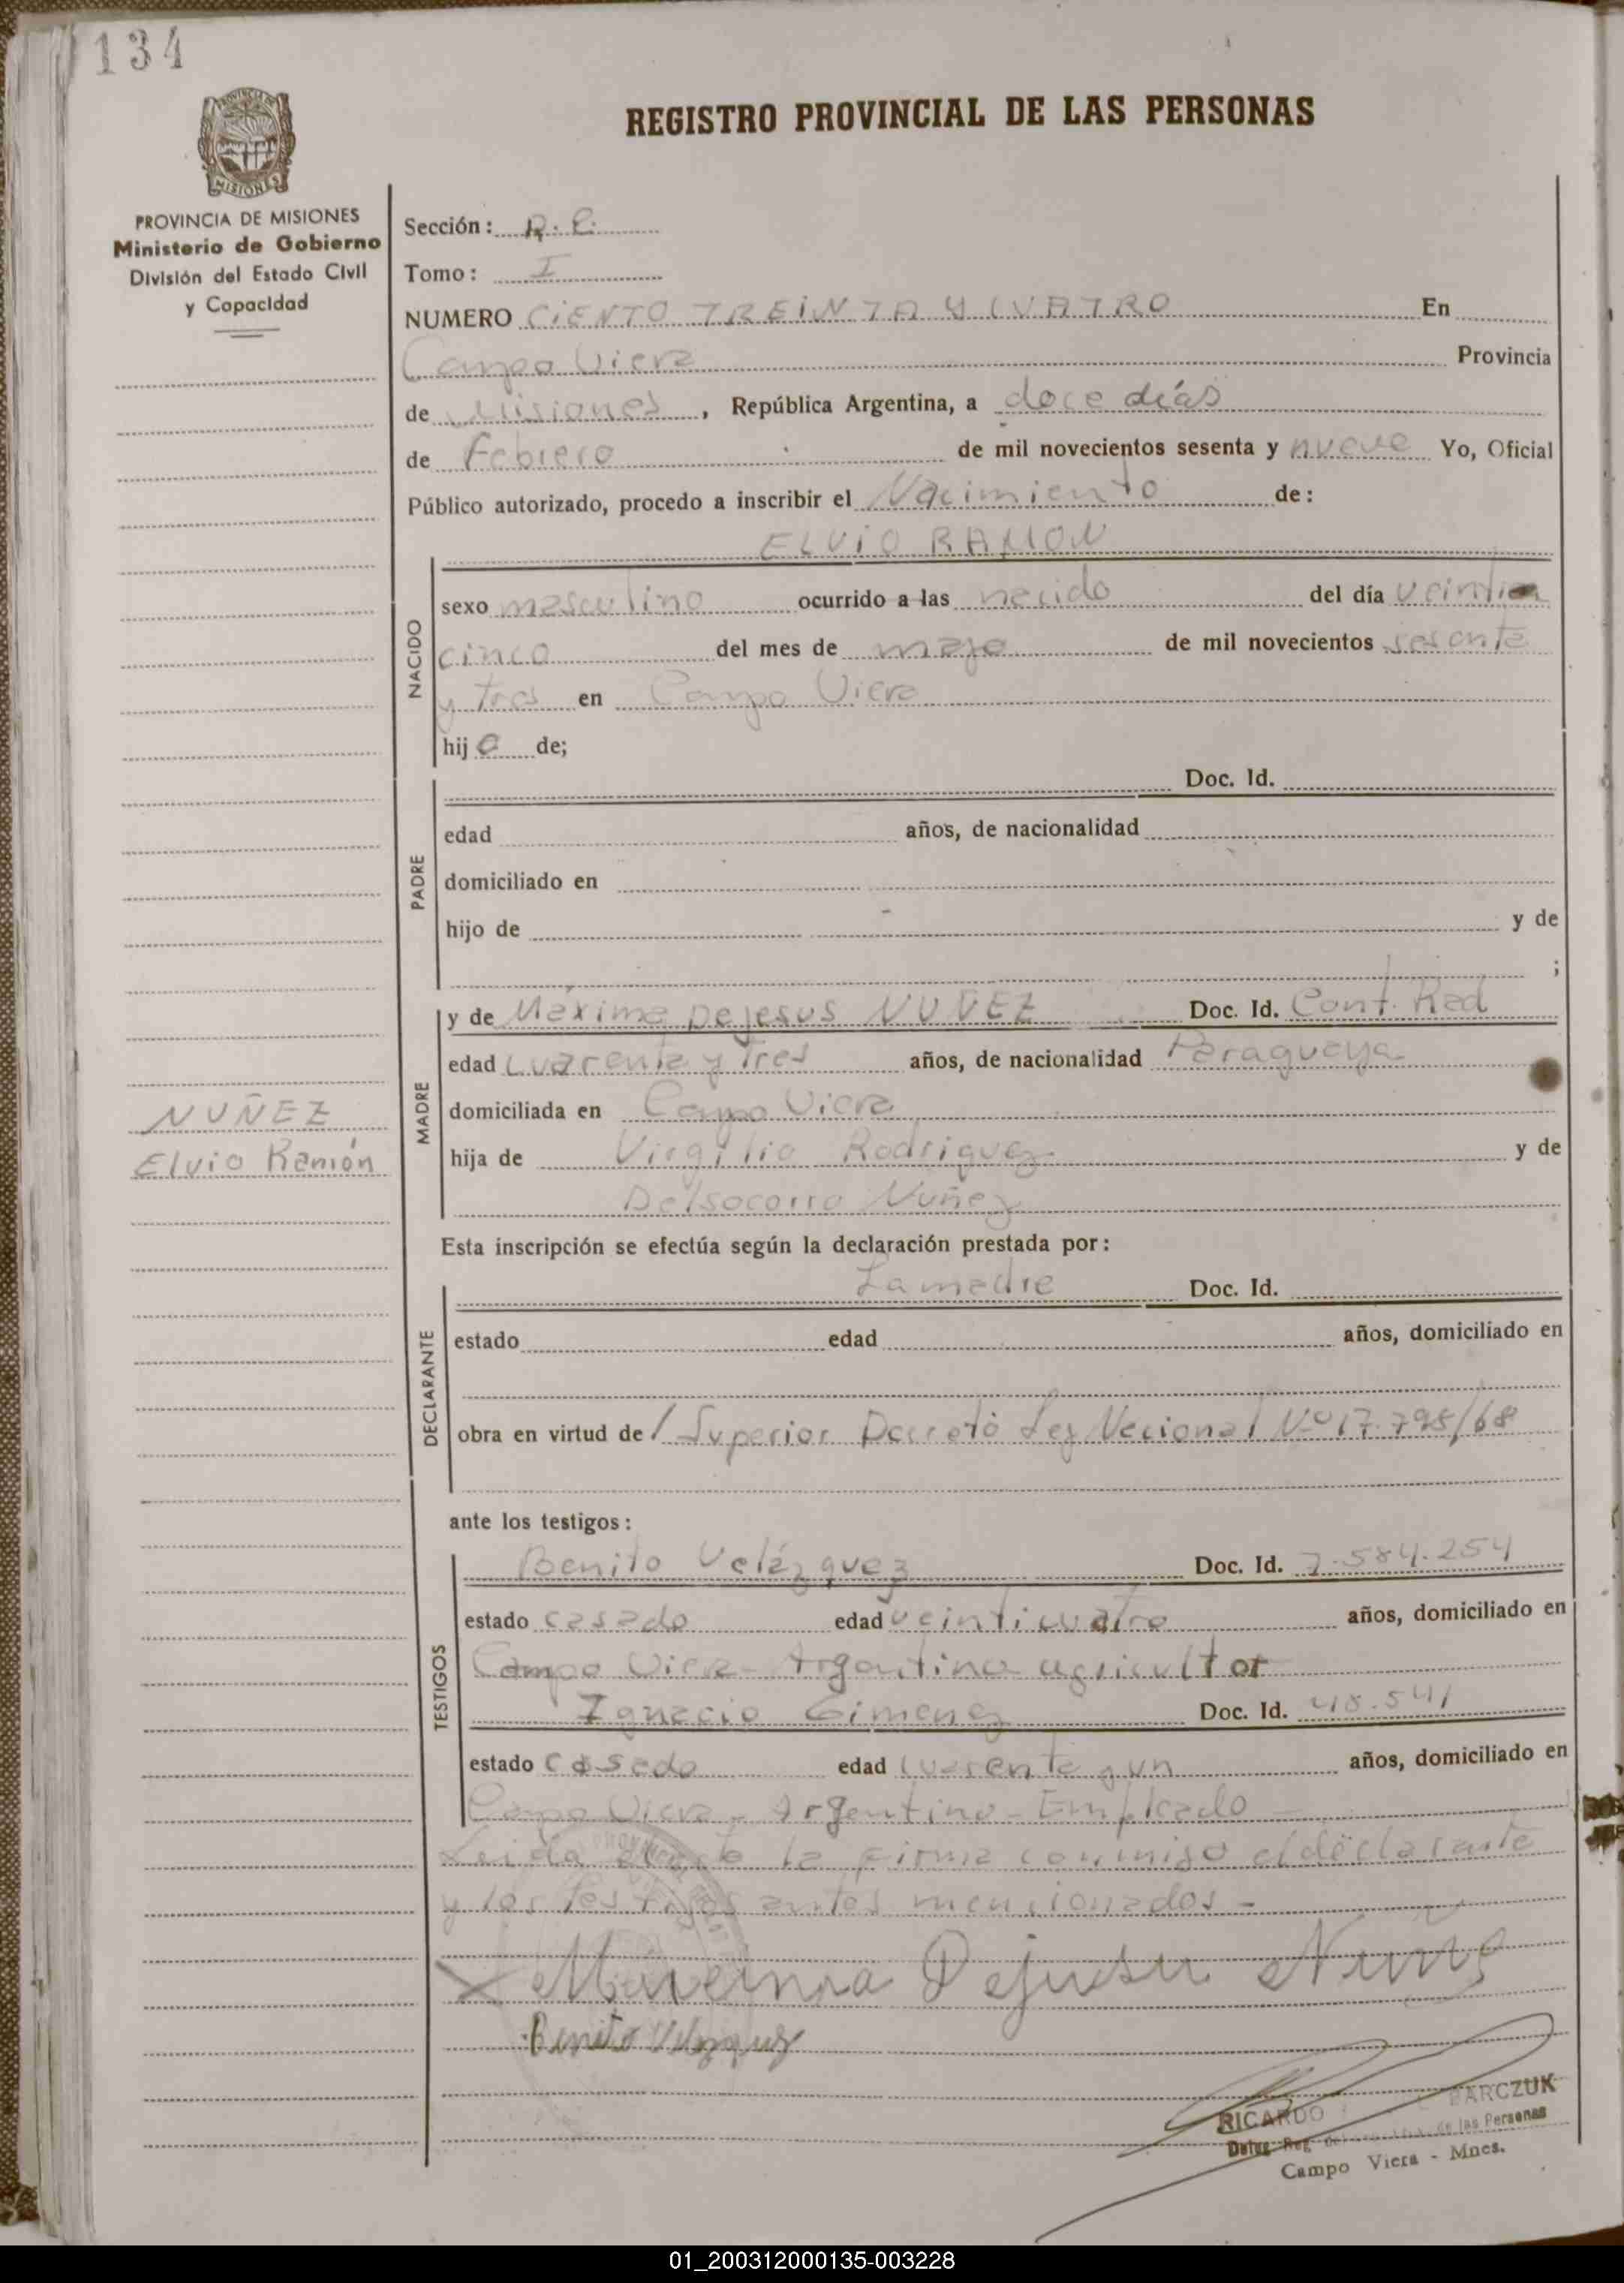 134
REGISTRO PROVINCIAL DE LAS PERSONAS
PROVINCIA DE
MISIONES
PROVINCIA DE MISIONES
Ministerio de Gobierno
División del Estado Civil
y Capacidad
Sección: R. E.
Tomo: I
NUMERO CIENTO TREINTA Y CUATRO En
Campo Viera Provincia
de Misiones, República Argentina, a doce días
de Febrero de mil novecientos sesenta y nueve Yo, Oficial
Público autorizado, procedo a inscribir el Nacimiento de:
ELVIO RAMON
NACIDO
sexo masculino ocurrido a las nacido del día veinti
cinco del mes de mayo de mil novecientos sesenta
y tres en Campo Viera
hijo de;
PADRE
Doc. Id.
edad años, de nacionalidad
domiciliado en
hijo de y de
;
MADRE
y de Máxima Dejesus NUÑEZ Doc. Id. Cont. Rad
edad cuarenta y tres años, de nacionalidad Paraguaya
domiciliada en Campo Viera
NUÑEZ
Elvio Ramón
hija de Virgilio Rodriguez y de
Delsocorro Nuñez
Esta inscripción se efectúa según la declaración prestada por:
DECLARANTE
La madre Doc. Id.
estado edad años, domiciliado en
obra en virtud de / Superior Decreto Ley Nacional Nº 17.798/68
ante los testigos:
TESTIGOS
Benito Velázquez Doc. Id. 7.584.254
estado casado edad veinticuatro años, domiciliado en
Campo Viera - Argentino agricultor
Ignacio Gimenez Doc. Id. 48.541
estado casado edad cuarenta y un años, domiciliado en
Campo Viera - Argentino - Empleado
Leida el acta la firma conmigo el declarante
y los testigos antes mencionados -
Dejesu Nuñez
Benito Velazquez
RICARDO BARCZUK
de las Personas
Campo Viera - Mnes.
01_200312000135-003228